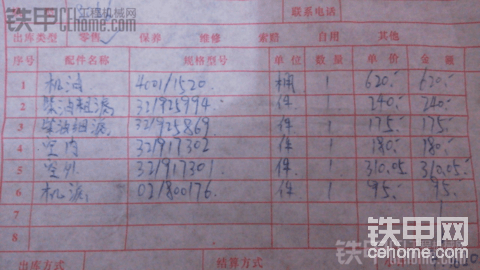 铁甲工程机械网
联系电话
出库类型 零售 保养 维修 索赔 自用 其他
序号 配件名称 规格型号 单位 数量 单价 金额
1 机油 4001/1520 桶 1 620.- 620.-
2 柴油粗滤 32/925994 件 1 240.- 240.-
3 柴油细滤 32/925869 件 1 175.- 175.-
4 空内 32/917302 件 1 180.- 180.-
5 空外 32/917301 件 1 310.05 310.05
6 机滤 02/800176 件 1 95.- 95.-
7
8
出库方式 结算方式
铁甲
铁甲工程机械网